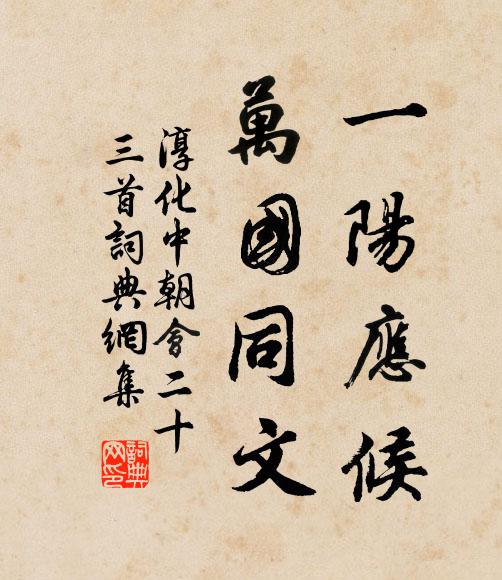 一陽應候
萬國同文
淳化中朝會二十
三首詞典網集
詞典
網印